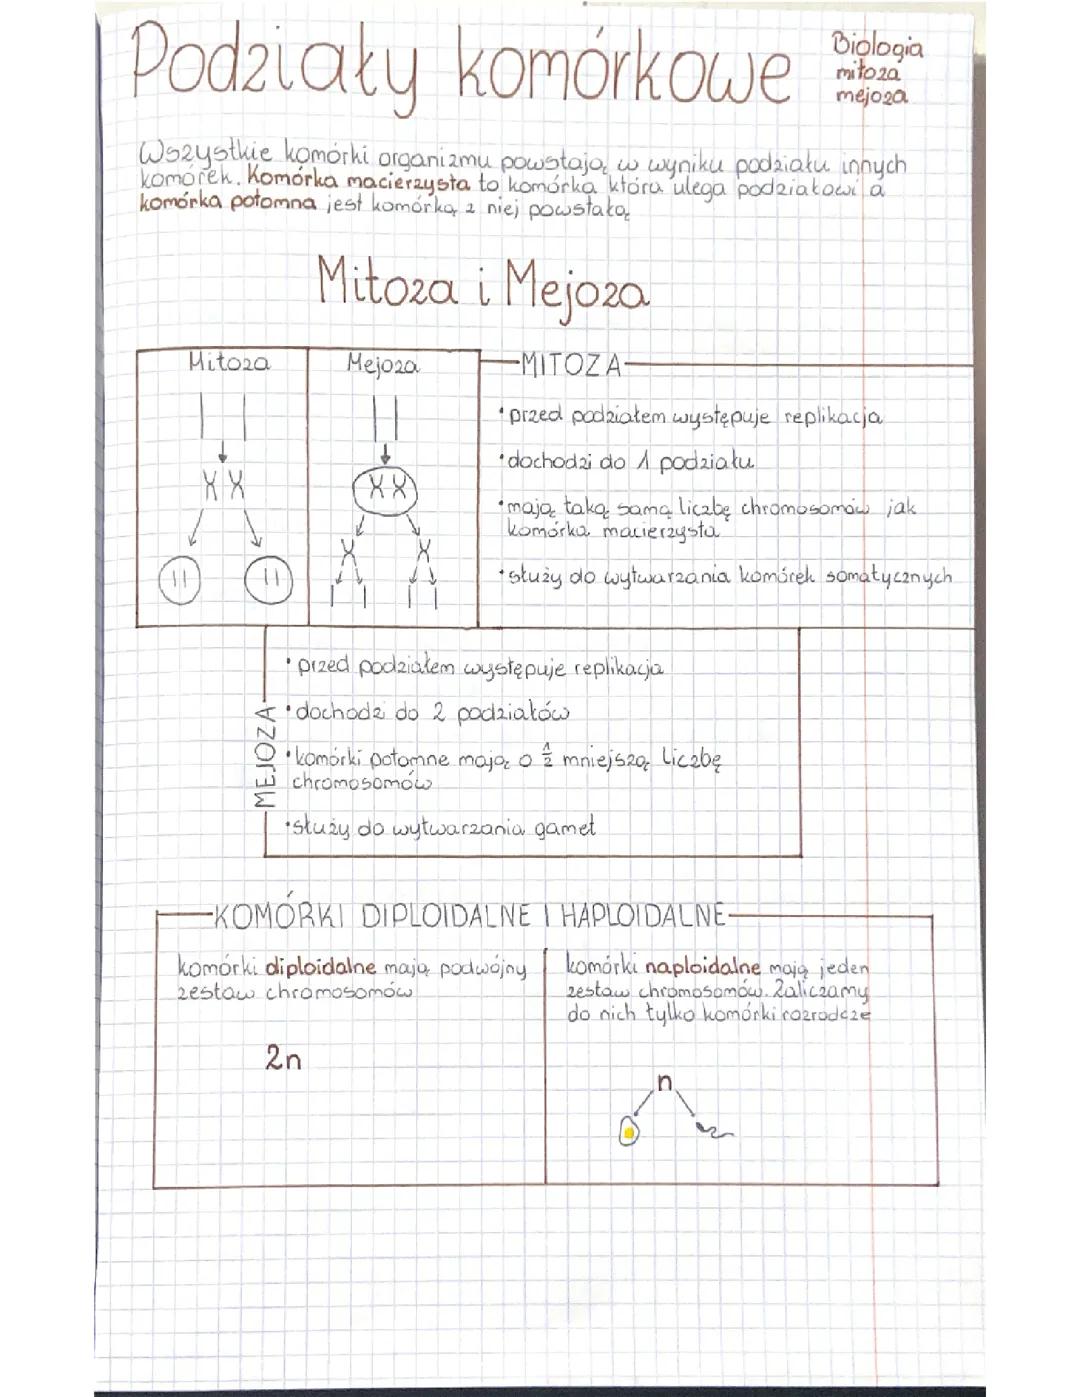 Podziały komórkowe
Biologia
mitoza
mejoza
Wszystkie komórki organizmu powstają w wyniku podziału innych
komórek. Komórka macierzysta to komórka która ulega podziałowi a
komórka potomna jest komórką z niej powstałą
Mitoza i Mejoza
Mitoza
Mejoza
MITOZA
• przed podziałem występuje replikacja
• dochodzi do 1 podziału
• mają taką samą liczbę chromosomów jak
komórka macierzysta
• służy do wytwarzania komórek somatycznych
MEJOZA
• przed podziałem występuje replikacja
• dochodzi do 2 podziałów
• komórki potomne mają o 1/2 mniejszą liczbę
chromosomów
• służy do wytwarzania gamet
KOMÓRKI DIPLOIDALNE I HAPLOIDALNE
komórki diploidalne mają podwójny
zestaw chromosomów
2n
komórki haploidalne mają jeden
zestaw chromosomów. Zaliczamy
do nich tylko komórki rozrodcze
n